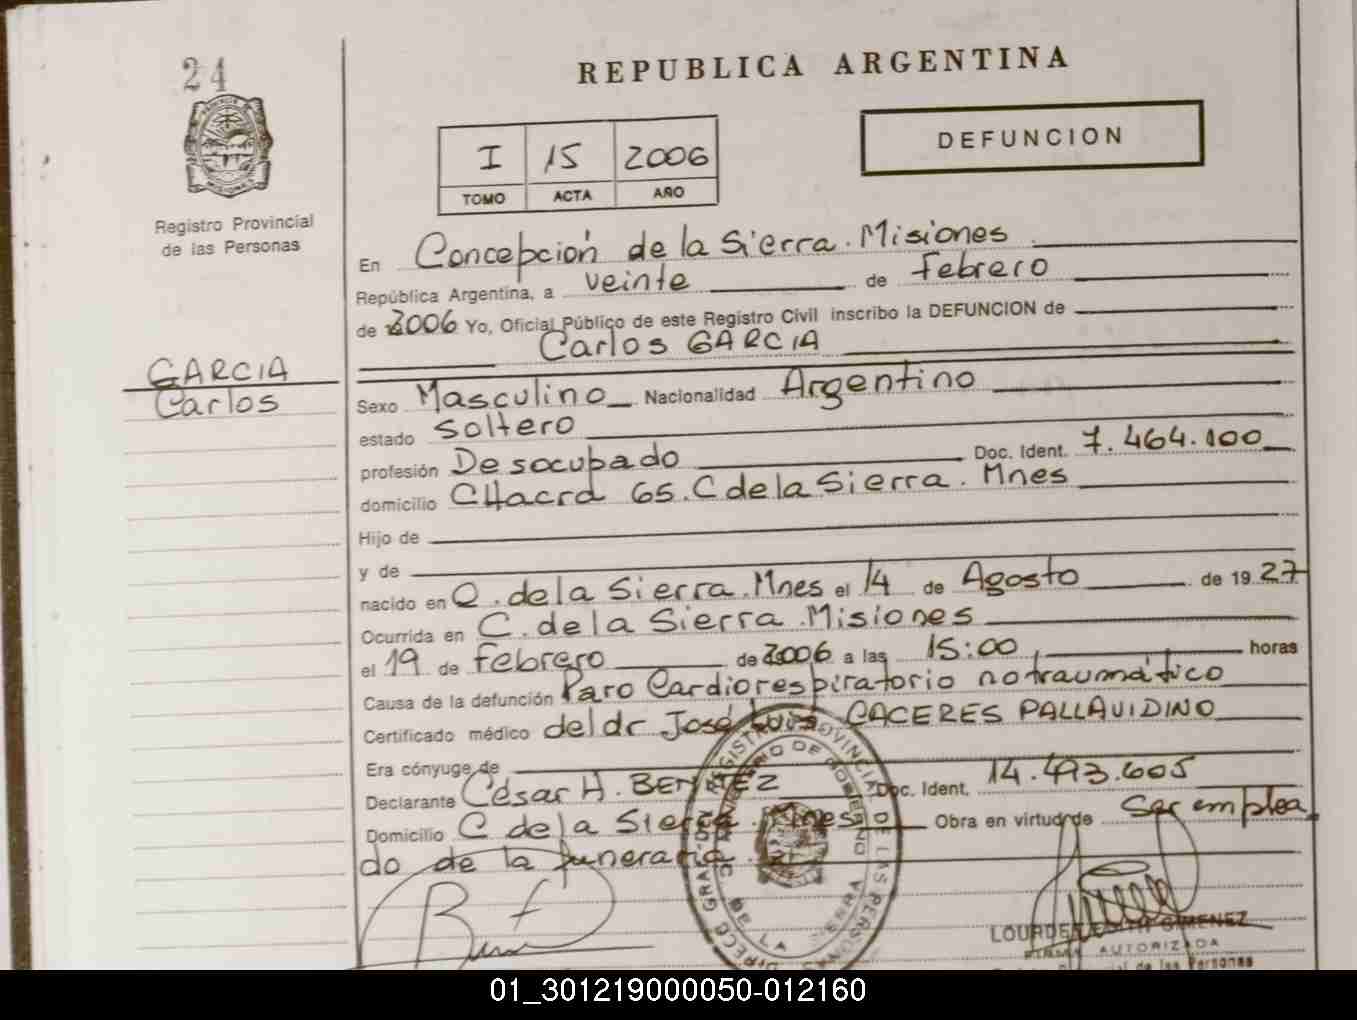 24
REPUBLICA ARGENTINA
DEFUNCION
I 15 2006
TOMO ACTA AÑO
Registro Provincial
de las Personas
En Concepción de la Sierra. Misiones
República Argentina, a veinte de febrero
de 2006 Yo, Oficial Público de este Registro Civil inscribo la DEFUNCION de
Carlos GARCIA
GARCIA
Carlos
Sexo Masculino Nacionalidad Argentino
estado Soltero
profesión Desocupado Doc. Ident. 7.464.100
domicilio CHacra 65. C de la Sierra. Mnes
Hijo de
y de
nacido en C. de la Sierra. Mnes el 14 de Agosto de 1927
Ocurrida en C. de la Sierra. Misiones
el 19 de febrero de 2006 a las 15:00 horas
Causa de la defunción Paro Cardiorespiratorio no traumático
Certificado médico del dr José Luis CACERES PALLAVIDINO
Era cónyuge de
Declarante César H. BENITEZ Doc. Ident. 14.493.605
Domicilio C de la Sierra. Mnes Obra en virtud de Ser emplea
do de la funeraria
REGISTRO PROVINCIAL DE LAS PERSONAS
MINISTERIO DE GOBIERNO
DE LA SIERRA
LOURDES GIMENEZ
FIRMA AUTORIZADA
de las Personas
01_301219000050-012160